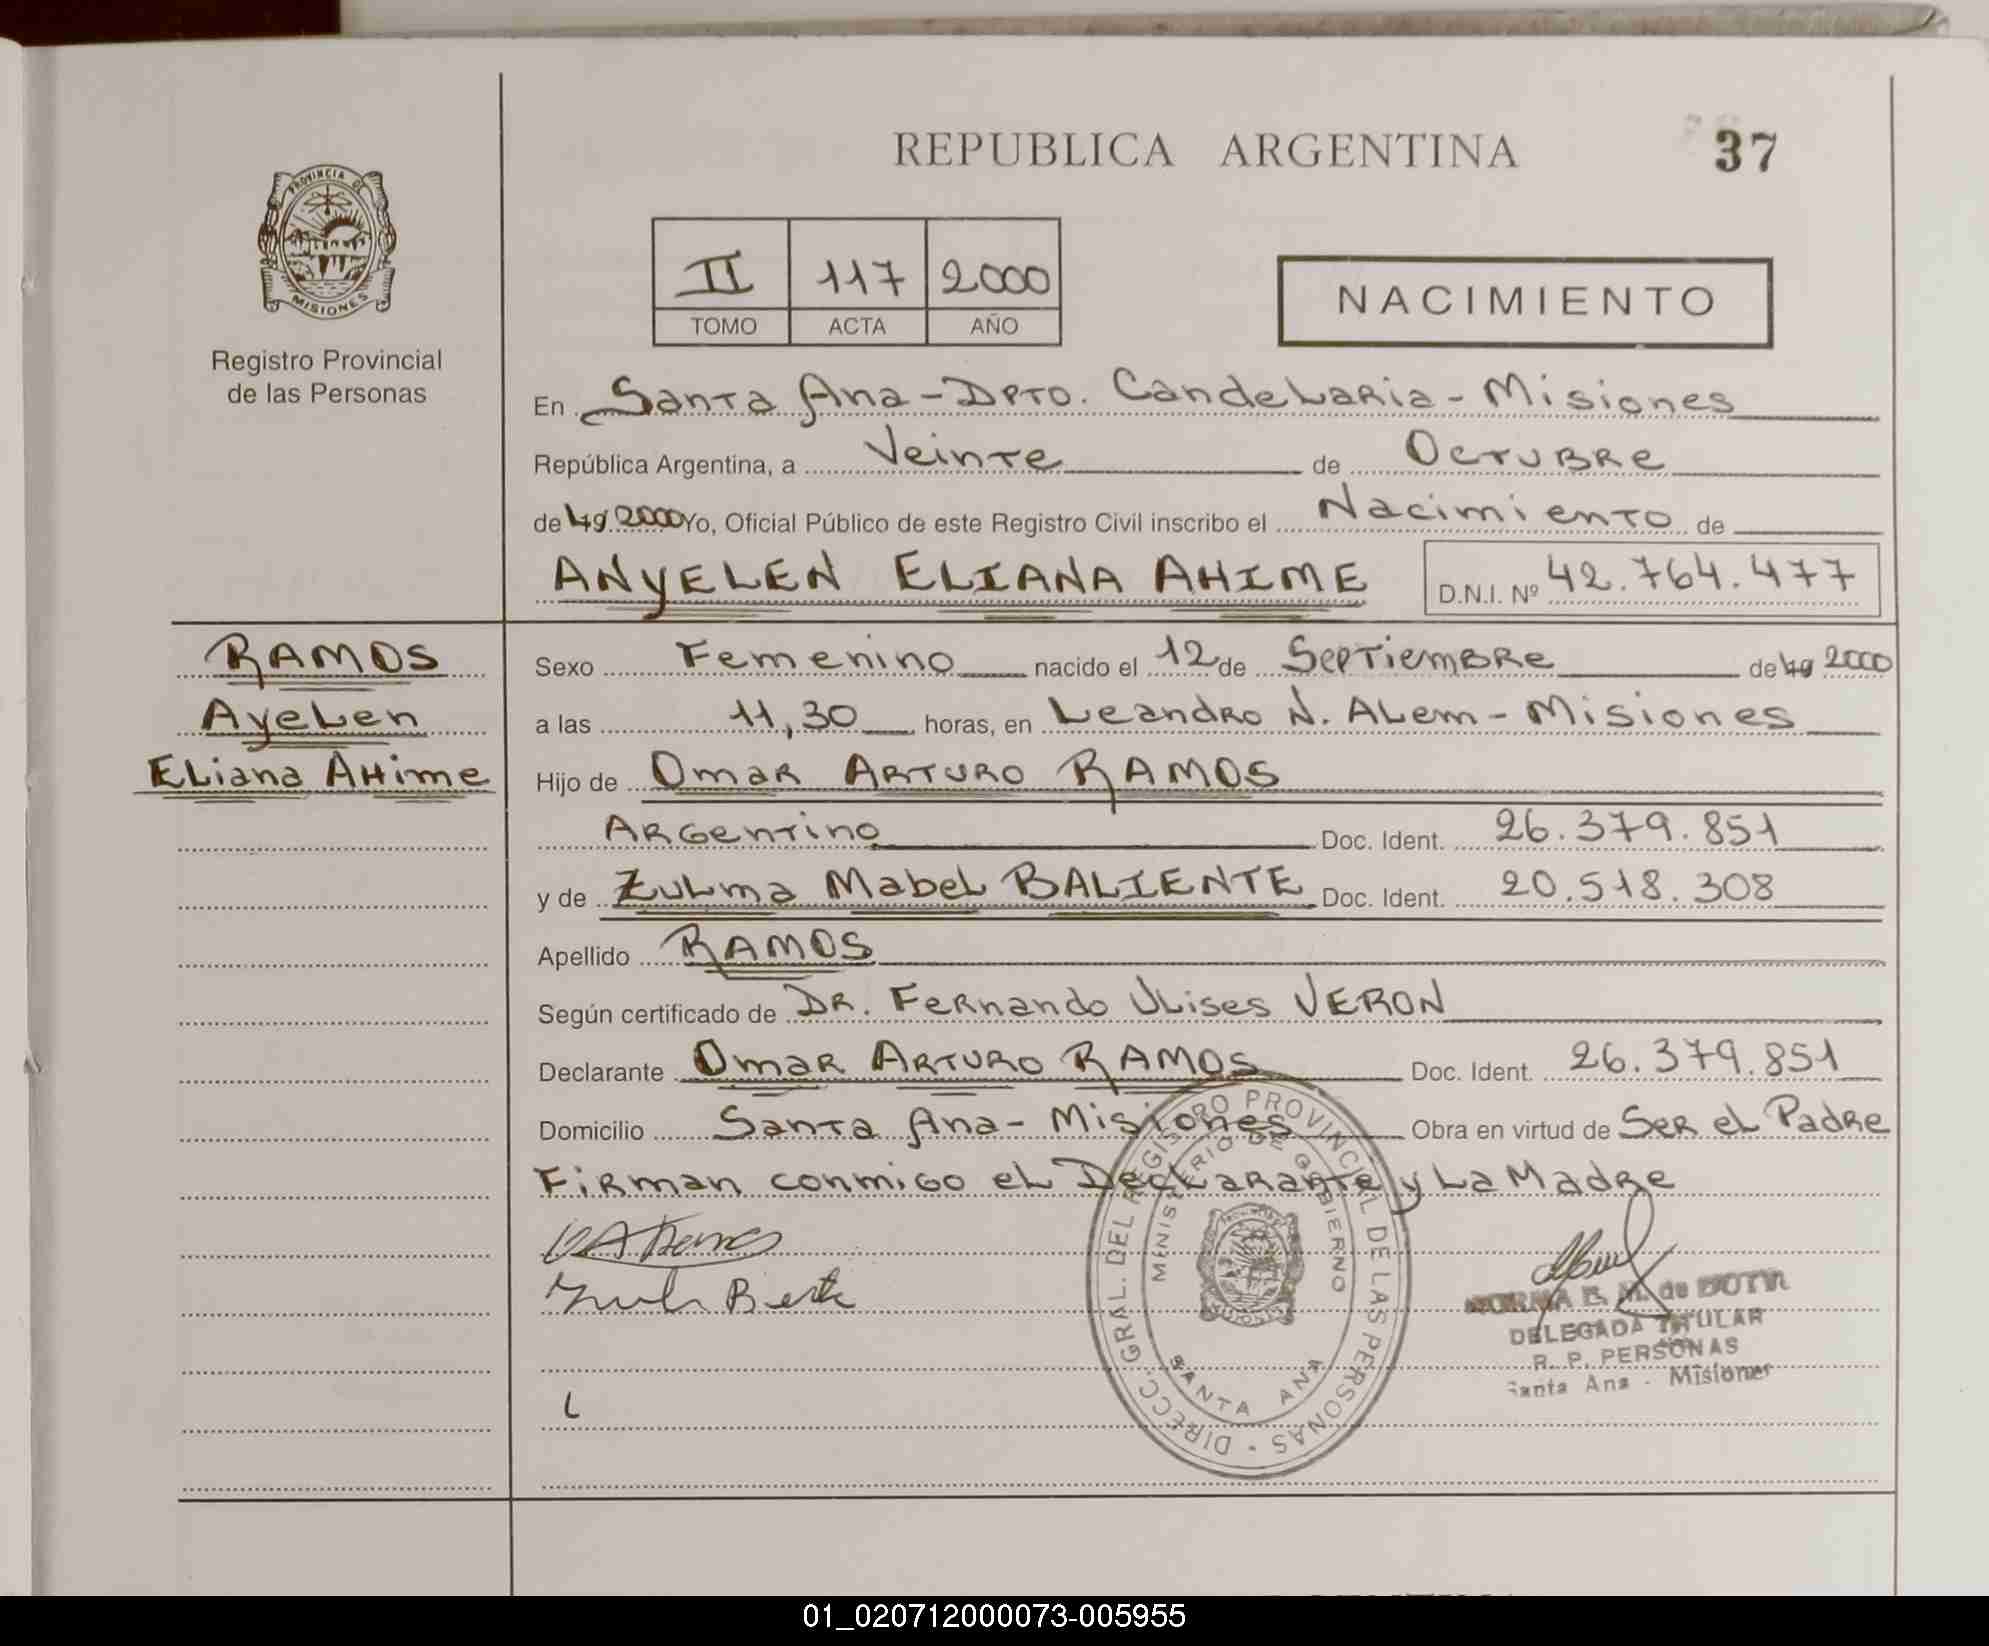 REPUBLICA ARGENTINA
37
PROVINCIA DE
MISIONES
Registro Provincial
de las Personas
II 117 2000
TOMO ACTA AÑO
NACIMIENTO
En Santa Ana - Dpto. Candelaria - Misiones
República Argentina, a Veinte de Octubre
de 19 2000 Yo, Oficial Público de este Registro Civil inscribo el Nacimiento de
ANYELEN ELIANA AHIME D.N.I. Nº 42.764.477
RAMOS
Ayelen
Eliana Ahime
Sexo Femenino nacido el 12 de Septiembre de 19 2000
a las 11,30 horas, en Leandro N. Alem - Misiones
Hijo de Omar Arturo RAMOS
Argentino Doc. Ident. 26.379.851
y de Zulma Mabel BALIENTE Doc. Ident. 20.518.308
Apellido RAMOS
Según certificado de Dr. Fernando Ulises VERON
Declarante Omar Arturo RAMOS Doc. Ident. 26.379.851
Domicilio Santa Ana - Misiones Obra en virtud de Ser el Padre
Firman conmigo el Declarante y La Madre
DIRECC. GRAL. DEL REGISTRO PROVINCIAL DE LAS PERSONAS
MINISTERIO DE GOBIERNO
SANTA ANA
NORMA E. M. de
DELEGADA TITULAR
R. P. PERSONAS
Santa Ana - Misiones
01_020712000073-005955